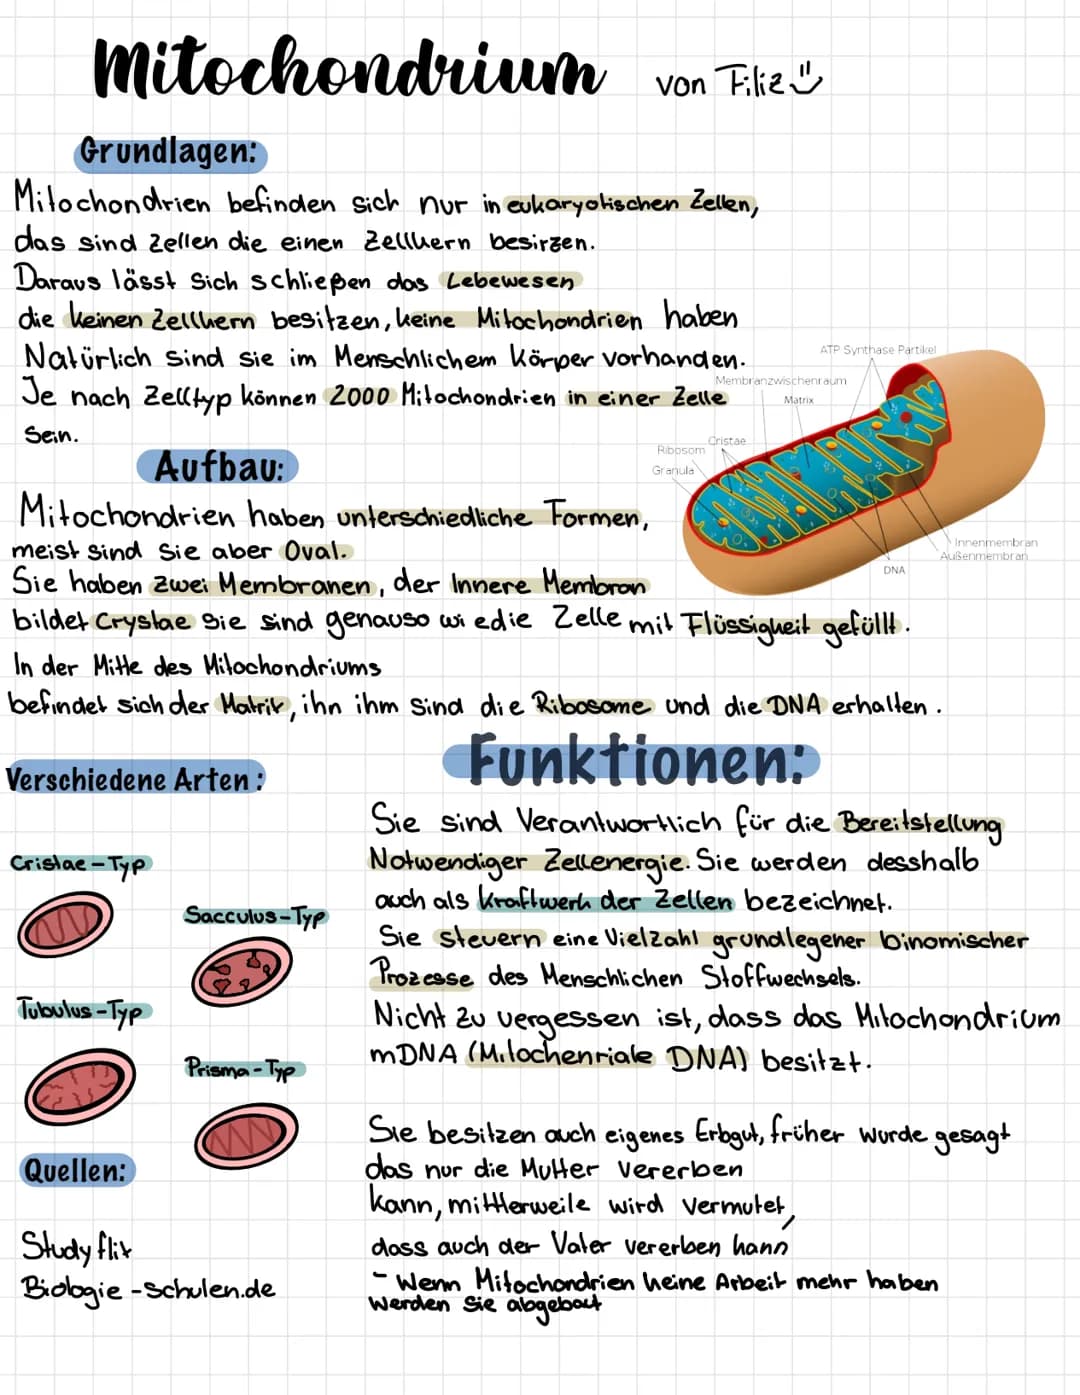 Mitochondrium von Filiz
Grundlagen:
Mitochondrien befinden sich nur in eukaryotischen Zellen,
das sind Zellen die einen Zellkern besirzen.
Daraus lässt sich schließen das Lebewesen
die keinen Zellkern besitzen, keine Mitochondrien haben
Natürlich sind sie im Menschlichem Körper vorhanden.
Je nach Zelltyp können 2000 Mitochondrien in einer Zelle
Sein.
ATP Synthase Partikel
Membranzwischenraum
Matrix
Cristae
Ribosom
Granula
Innenmembran
Außenmembran
DNA
Aufbau:
Mitochondrien haben unterschiedliche Formen,
meist sind sie aber Oval.
Sie haben zwei Membranen, der Innere Membran
bildet Crystae Sie sind genauso wi edie Zelle mit Flüssigkeit gefüllt.
In der Mitte des Mitochondriums
befindet sich der Matrix, ihn ihm sind die Ribosome und die DNA erhalten.
Verschiedene Arten:
Cristae-Typ
Sacculus-Typ
Tubulus-Typ
Prisma-Typ
Quellen:
Studyflix
Biologie-Schulen.de
Funktionen:
Sie sind Verantwortlich für die Bereitstellung
Notwendiger Zellenergie. Sie werden desshalb
auch als Kraftwerk der Zellen bezeichnet.
Sie steuern eine Vielzahl grundlegener binomischer
Prozesse des Menschlichen Stoffwechsels.
Nicht zu vergessen ist, dass das Mitochondrium
mDNA (Mitochenriale DNA) besitzt.
Sie besitzen auch eigenes Erbgut, früher wurde gesagt
das nur die Mutter vererben
kann, mittlerweile wird vermutet,
dass auch der Vater vererben kann
- Wenn Mitochondrien keine Arbeit mehr haben
werden sie abgebaut